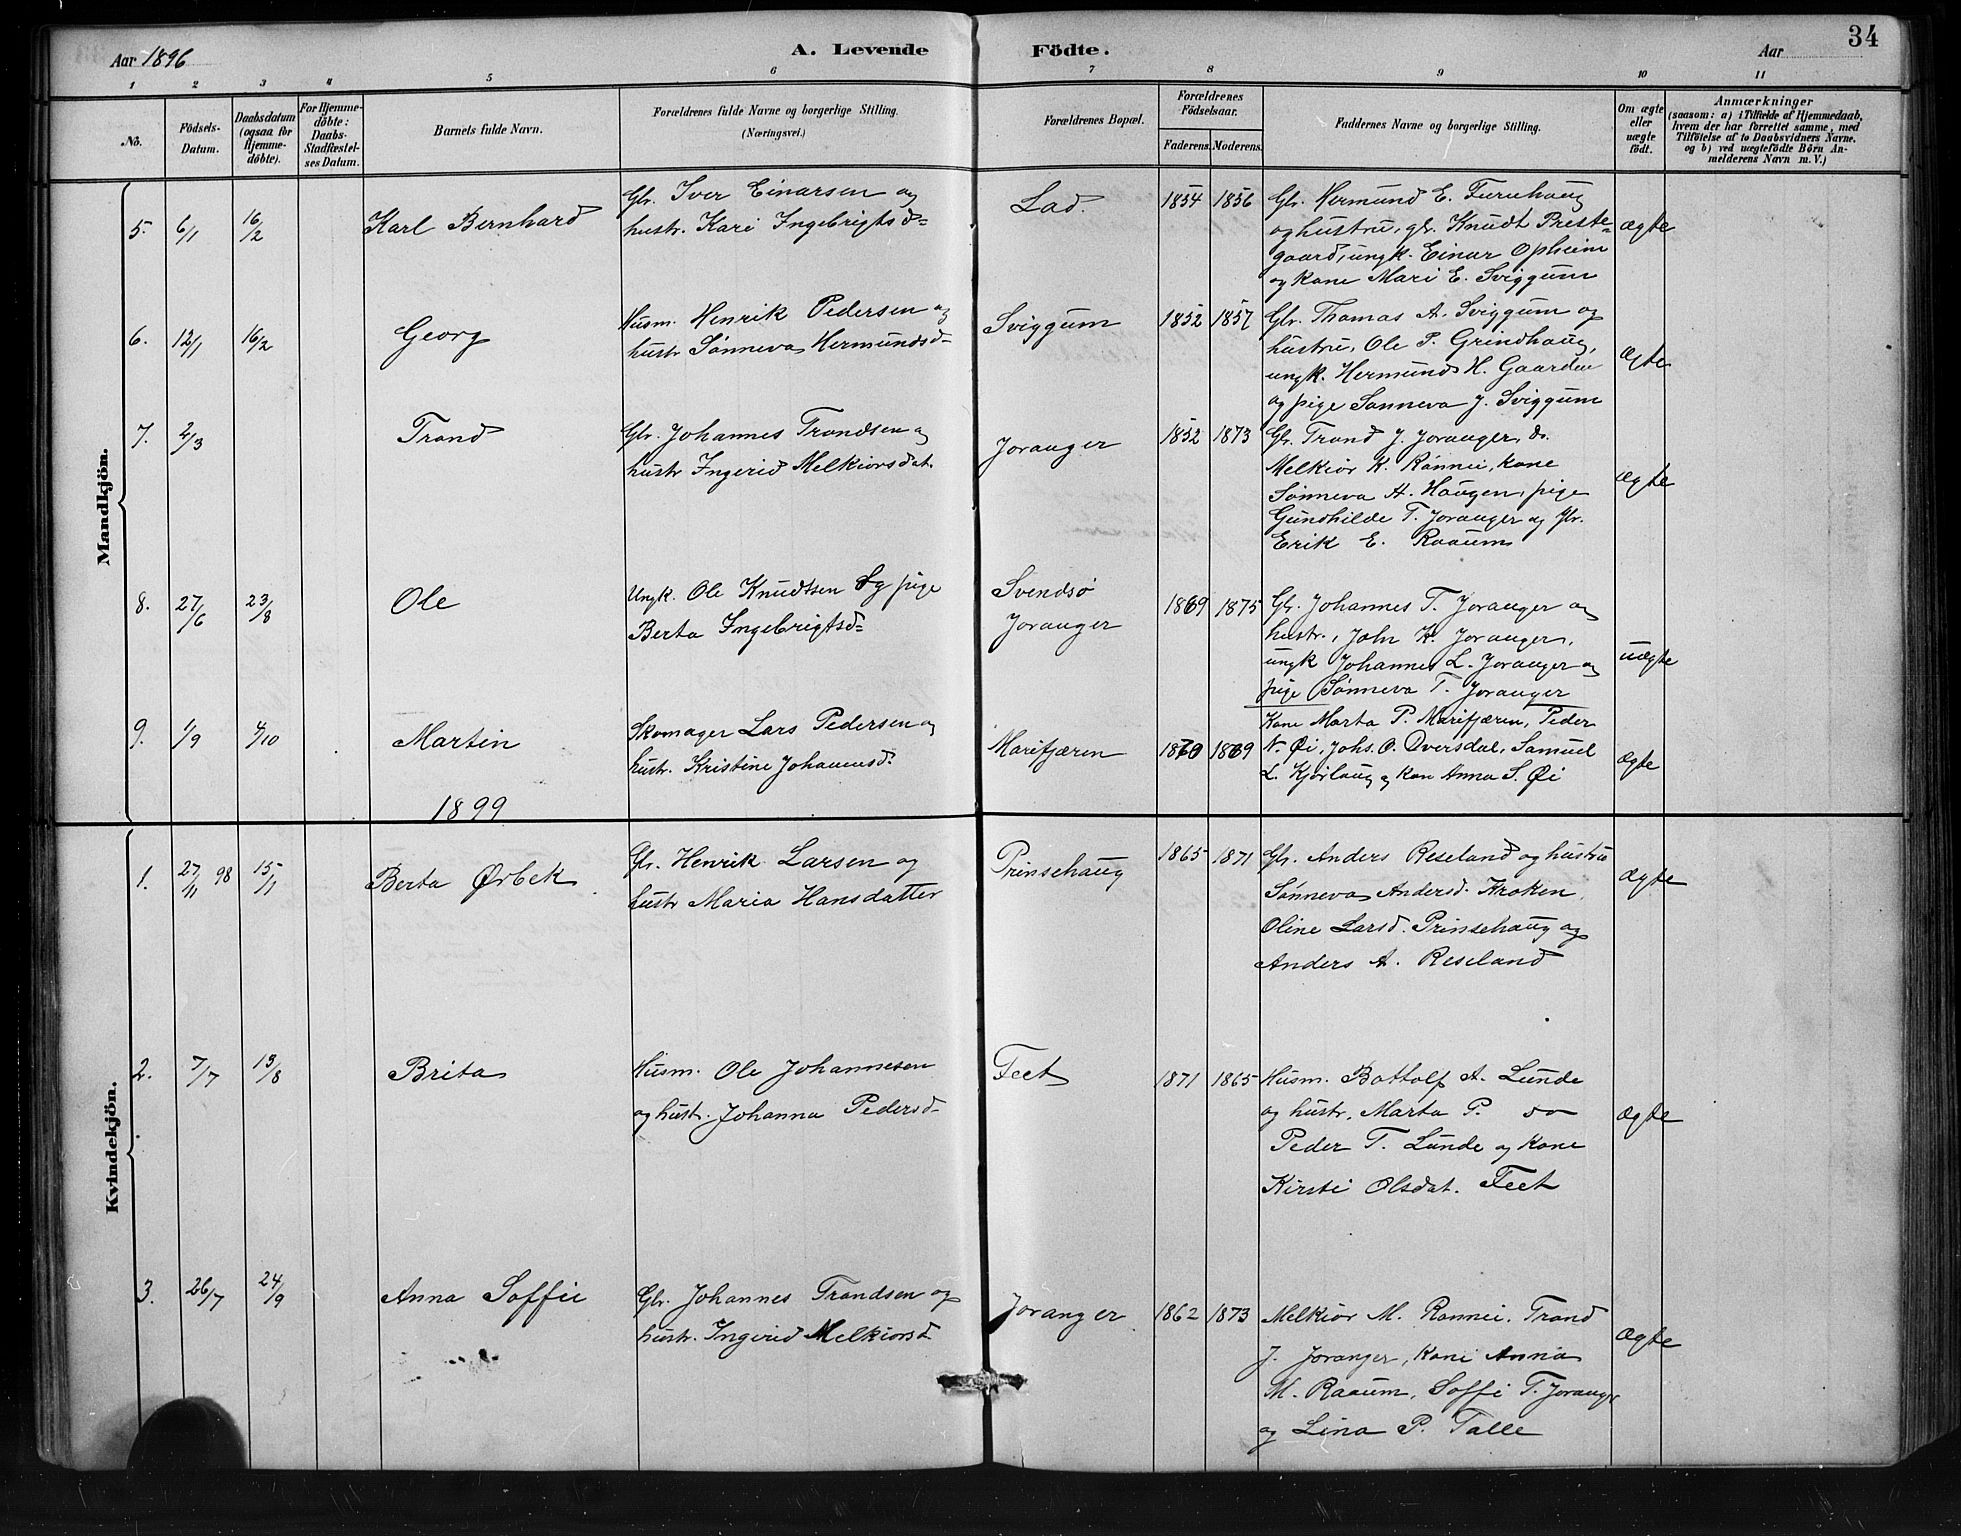 34
Aar 1896
A. Levende Födte.
Aar
1 2 3 4 5 6 7 8 9 10 11
No.
Födsels-Datum.
Daabsdatum (ogsaa for Hjemme-döbte).
For Hjemme-döbte: Daabs-Stadfæstel-ses Datum.
Barnets fulde Navn.
Forældrenes fulde Navne og borgerlige Stilling. (Næringsvei.)
Forældrenes Bopæl.
Forældrenes Födselsaar.
Faderens. Moderens.
Faddernes Navne og borgerlige Stilling.
Om ægte eller uægte födt.
Anmærkninger
(saasom: a) i Tilfælde af Hjemmedaab, hvem der har forrettet samme, med Tilföielse af to Daabsvidners Navne. og b) ved uægtefödte Börn An-melderens Navn m. V.)
Mandkjön.
5. 6/1 16/2 Karl Bernhard
Gbr. Iver Einarsen og
hustr. Kari Ingebrigtsd=
Lad. 1854 1856
Gbr. Hermund E. Furuhaug
og hustru, gbr. Knudt Preste-
gaard, ungk. Einar Opheim
og kone Mari E. Sviggum
ægte
6. 12/1 16/2 Georg
Husm. Henrik Pedersen og
hustr Sønneva Hermundsd=
Sviggum 1852 1857
Gbr. Thomas A. Sviggum og
hustru, Ole P. Grindhaug,
ungk. Hermund H. Gaarden
og pige Sønneva J. Sviggum
ægte
7. 2/3 Trond
Gbr. Johannes Trondsen og
hustr Ingerid Melkiorsdat.
Joranger 1852 1873
Gbr. Trond J. Joranger, do.
Melkior K. Rønnei, kone
Sønneva H. Haugen, pige
Gundhilde T. Joranger og gbr.
Erik E. Raaum
ægte
8. 27/6 23/8 Ole
Ungk. Ole Knudtsen og pige
Berta Ingebrigtsd=
Svendsø
Joranger
1869 1875
Gbr. Johannes T. Joranger og
hustr., John K. Joranger,
ungk Johannes L. Joranger og
pige Sønneva T. Joranger
uægte
9. 1/9 4/10 Martin
Skomager Lars Pedersen og
hustr. Kristine Johannesd.
Marifjæren 1870 1869
Kone Marta P. Marifjæren, Peder
N. Øi, Johs. O. Dversdal, Samuel
L. Kjørlaug og kone Anna S. Øi
ægte
1899
Kvindekjön.
1. 27/11 98 15/1 Berta Ørbek
Gbr. Henrik Larsen og
hustr Maria Hansdatter
Prinsehaug 1865 1871
Gbr. Anders Reseland og hustru
Sønneva Andersd. Kroken
Oline Larsd. Prinsehaug og
Anders A. Reseland
ægte
2. 7/7 13/8 Brita
Husm. Ole Johannesen
og hustr. Johanna Pedersd=
Feet 1871 1865
Husm. Bottolf A. Lunde
og hustr. Marta P. do
Peder T. Lunde og kone
Kirsti Olsdat. Feet
ægte
3. 26/7 24/9 Anna Soffie
Gbr. Johannes Trondsen og
hustr. Ingerid Melkiorsd
Joranger 1862 1873
Melkior M. Rønnei, Trond
J. Joranger, kone Anna
M. Raaum, Soffi T. Joranger
og Lina P. Talle
ægte